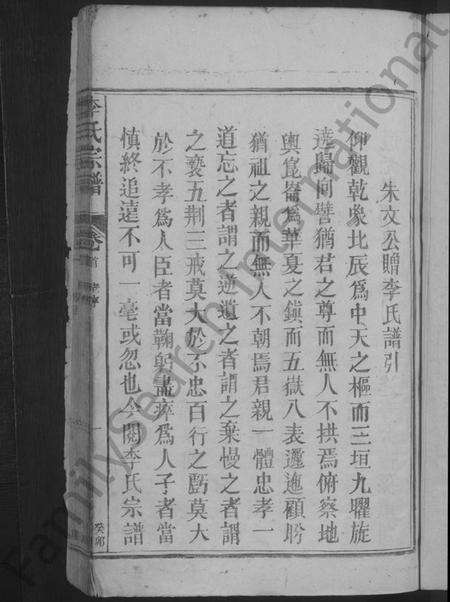 朱文公贈李氏譜引
仰觀乾象北辰為中天之樞而三垣九曜旋
遶歸向譬猶君之尊而無人不拱焉俯察地
輿崑崙為華夏之鎮而五嶽八表邐迤顧盼
猶祖之親而無人不朝焉君親一體忠孝一
道忘之者謂之逆遺之者謂之棄慢之者謂
之褻五荆三戒莫大於不忠百行之虧莫大
於不孝為人臣者當鞠躬盡瘁為人子者當
慎終追遠不可一毫或忽也今閱李氏宗譜
李氏宗譜
卷首
一
癸卯
FamilySearch International